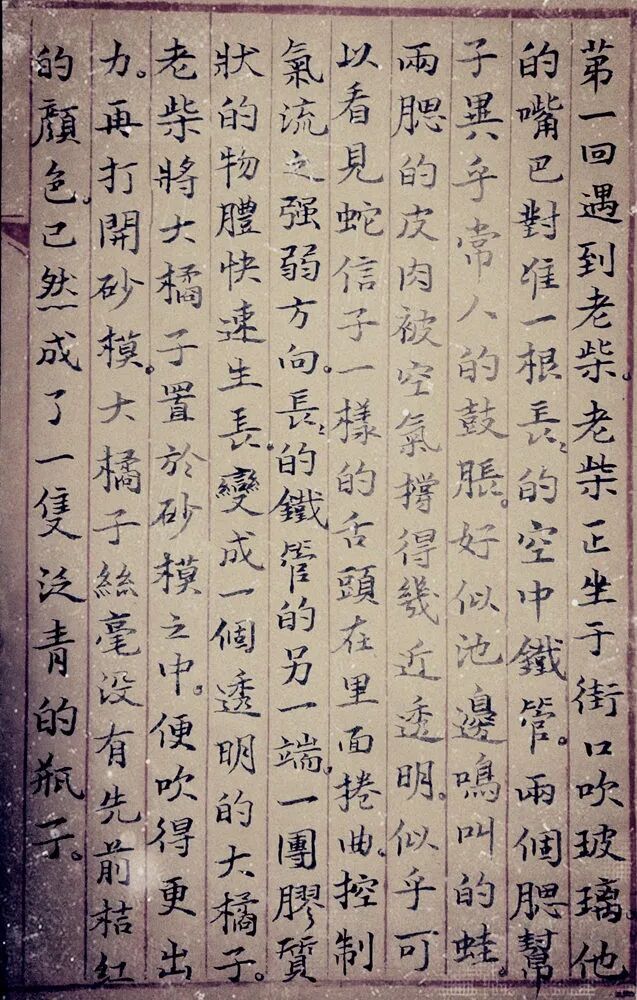 第一回遇到老柴。老柴正坐于街口吹玻璃。他
的嘴巴對准一根長〻的空中鐵管。兩個腮幫
子異乎常人的鼓脹。好似池邊鳴叫的蛙。
兩腮的皮肉被空氣撐得幾近透明。似乎可
以看見蛇信子一樣的舌頭在里面捲曲。控制
氣流之强弱方向。長〻的鐵管的另一端。一團膠質
狀的物體快速生長。變成一個透明的大橘子。
老柴將大橘子置於砂模之中。便吹得更出
力。再打開砂模。大橘子絲毫没有先前桔红
的顏色。已然成了一隻泛青的瓶子。